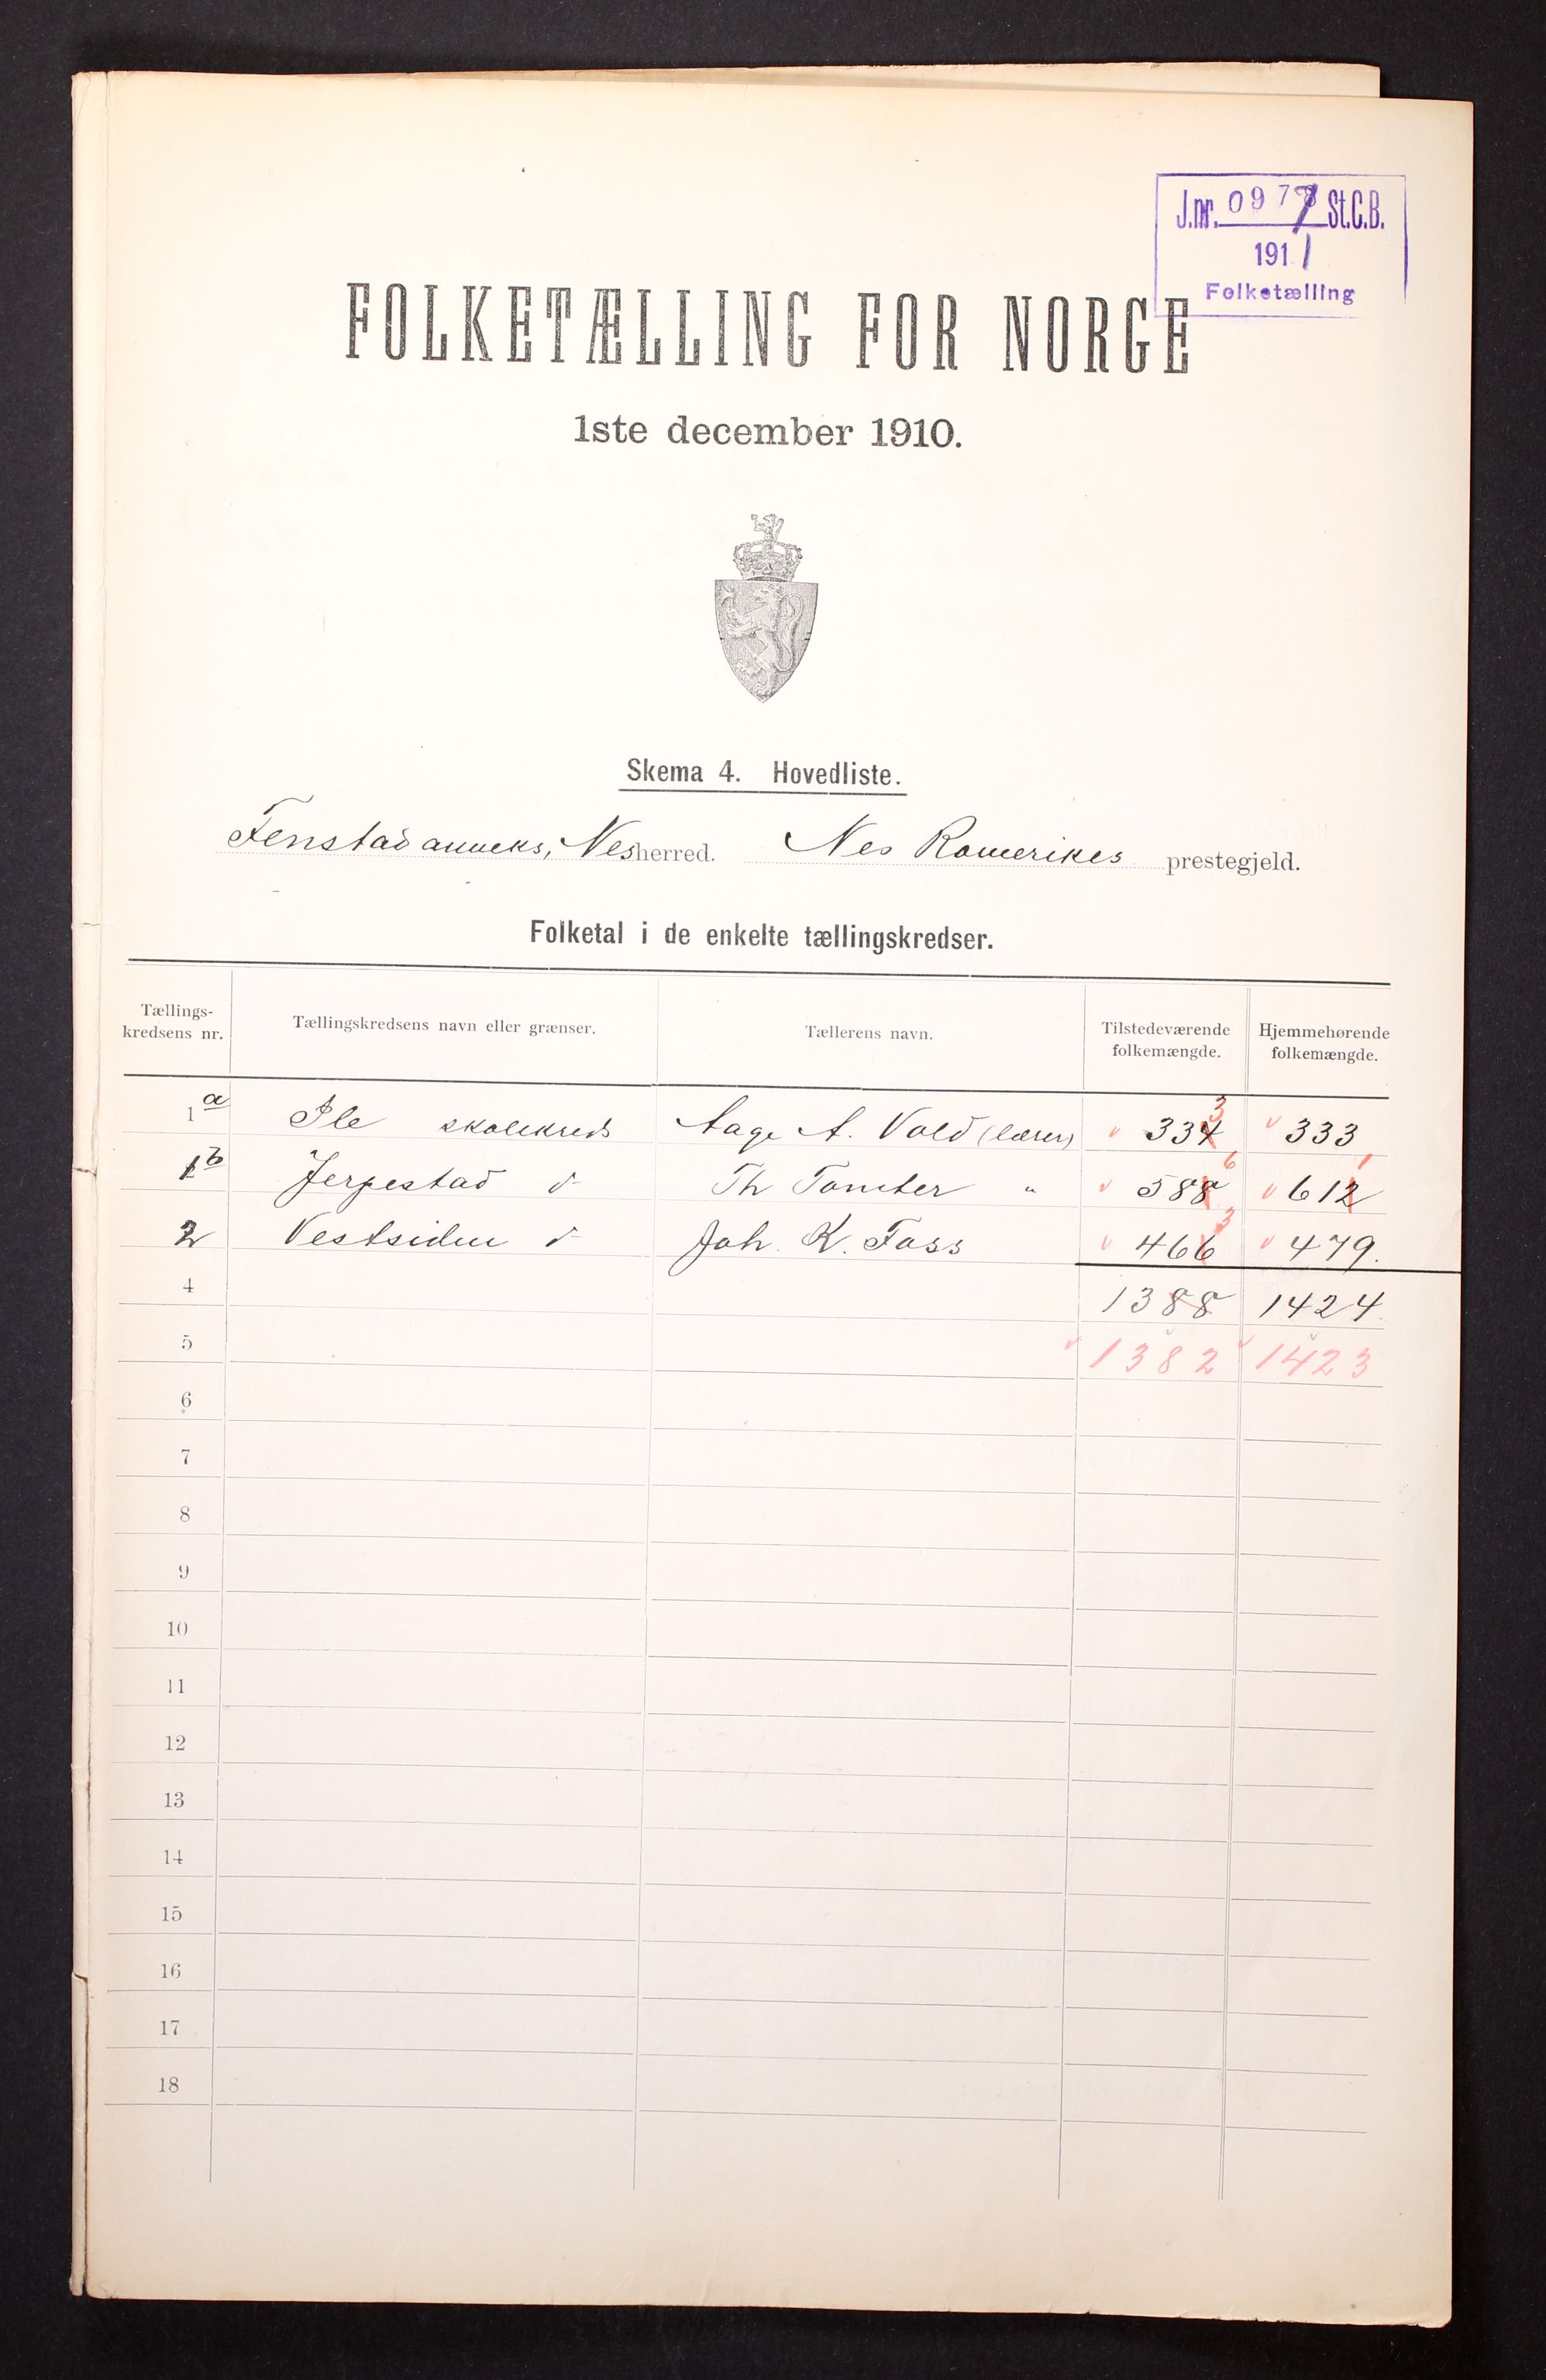 J.nr. 0977 St.C.B.
1911
Folketælling
FOLKETÆLLING FOR NORGE
1ste december 1910.
Skema 4. Hovedliste.
Fenstad anneks, Nes herred. Nes Romerikes prestegjeld.
Folketal i de enkelte tællingskredser.
Tællings-kredsens nr. Tællingskredsens navn eller grænser. Tællerens navn. Tilstedeværende folkemængde. Hjemmehørende folkemængde.
3
1a Ile skolekreds Aage A. Vold (lærer) 334 333
6 1
1b Jerpestad d Th Tomter " 588 612
3
2 Vestsiden d Joh. K. Foss 466 479.
4 1388 1424.
5 1382 1423
6
7
8
9
10
11
12
13
14
15
16
17
18